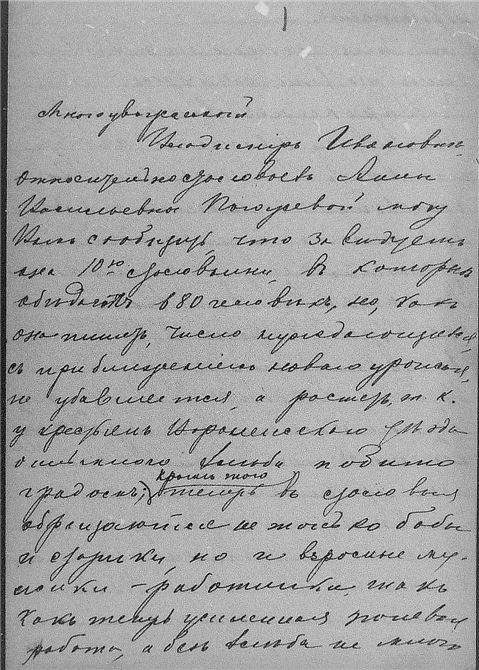 Многоуважаемый
Владимiръ Ивановичъ
относительно столовыхъ Анны
Васильевны Погоревой могу
Вамъ сообщить что завѣдуетъ
она 10ю столовыми, въ которыхъ
обѣдаетъ 680 человѣкъ, но, какъ
она пишетъ, число нуждающихся,
съ приближенiемъ новаго урожая,
не убавляется, а растетъ, т. к.
у крестьянъ Воронежскаго уѣзда
хлѣба побито
градомъ; кромѣ того теперь въ столовыя
обращаются не только бабы
и старики, но и взрослые му-
жики - работники, такъ
какъ теперь усиленная полевая
работа, а безъ хлѣба не много